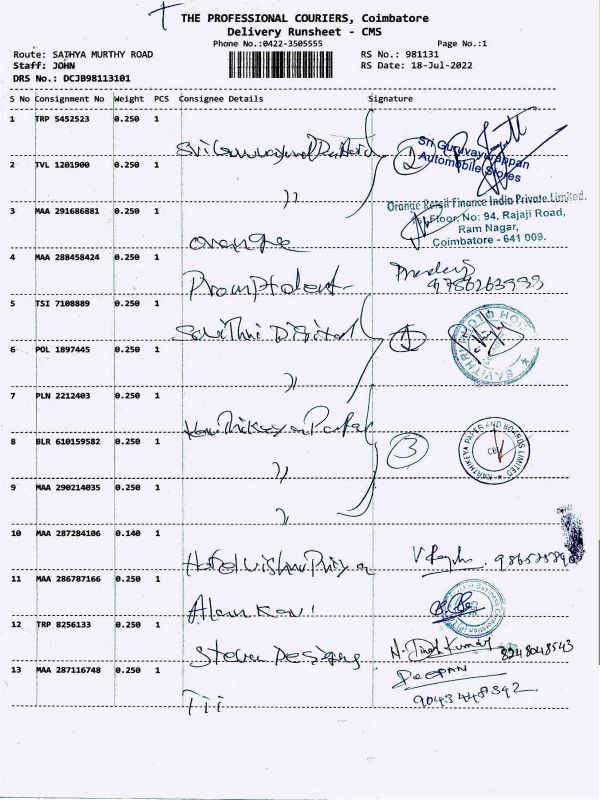 THE PROFESSIONAL COURIERS, Coimbatore
Delivery Runsheet - CMS
Phone No.:0422-3505555 Page No.:1
Route: SATHYA MURTHY ROAD RS No.: 981131
Staff: JOHN RS Date: 18-Jul-2022
DRS No.: DCJB98113101
S No Consignment No Weight PCS Consignee Details Signature
1 TRP 5452523 0.250 1
Sri Guruvayurappan
Automobile Stores
2 TVL 1201900 0.250 1 ))
3 MAA 291686881 0.250 1 orange
Orange Retail Finance India Private Limited.
Floor, No: 94, Rajaji Road,
Ram Nagar,
Coimbatore - 641 009.
4 MAA 288458424 0.250 1
5 TSI 7108889 0.250 1 Savithri Digital
6 POL 1897445 0.250 1 ))
7 PLN 2212403 0.250 1
KARTHIKEYA PAPER AND BOARDS LIMITED
CBE
8 BLR 610159582 0.250 1 )) 3
9 MAA 290214035 0.250 1 ))
10 MAA 287284106 0.140 1 Hotel Vishnu Priya
11 MAA 286787166 0.250 1
12 TRP 8256133 0.250 1 8248048543
13 MAA 287116748 0.250 1 Tii DEEPAN
9043448392